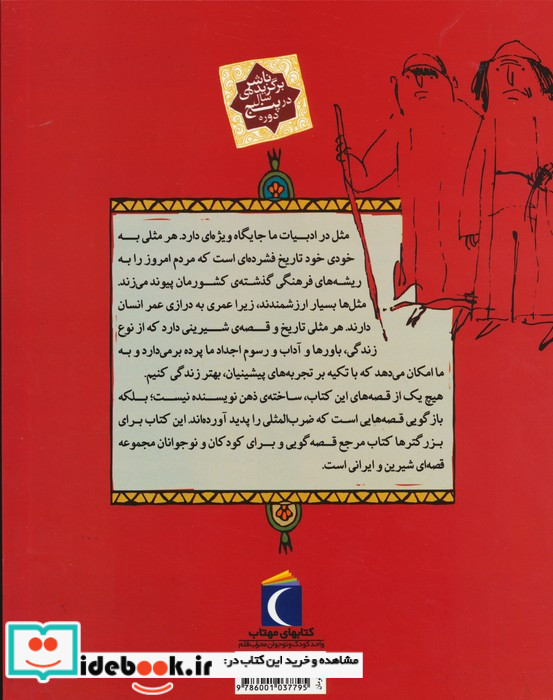 ناشر
برگزیده‌ی
سال
در پنج
دوره
مثل در ادبیات ما جایگاه ویژه‌ای دارد. هر مثلی به
خودی خود تاریخ فشرده‌ای است که مردم امروز را به
ریشه‌های فرهنگی گذشته‌ی کشورمان پیوند می‌زند.
مثل‌ها بسیار ارزشمندند، زیرا عمری به درازی عمر انسان
دارند. هر مثلی تاریخ و قصه‌ی شیرینی دارد که از نوع
زندگی، باورها و آداب و رسوم اجداد ما پرده برمی‌دارد و به
ما امکان می‌دهد که با تکیه بر تجربه‌های پیشینیان، بهتر زندگی کنیم.
هیچ یک از قصه‌های این کتاب، ساخته‌ی ذهن نویسنده نیست؛ بلکه
بازگویی قصه‌هایی است که ضرب‌المثلی را پدید آورده‌اند. این کتاب برای
بزرگترها کتاب مرجع قصه‌گویی و برای کودکان و نوجوانان مجموعه
قصه‌ای شیرین و ایرانی است.
کتابهای مهتاب
واحد کودک و نوجوان محراب قلم
مشاهده و خرید این کتاب در:
idebook.ir
تومان
9 786001 037795